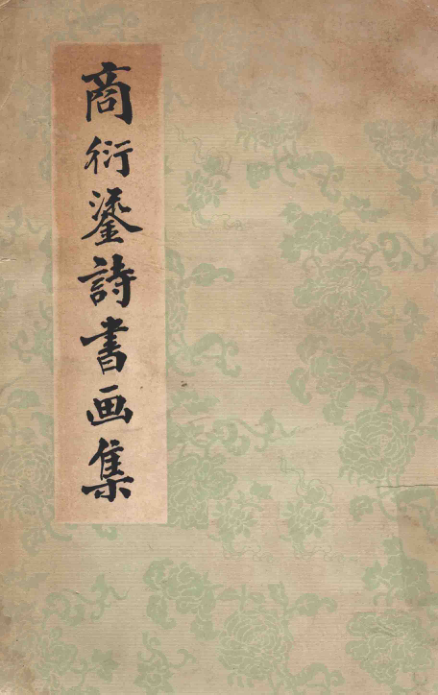 商衍鎏詩書画集